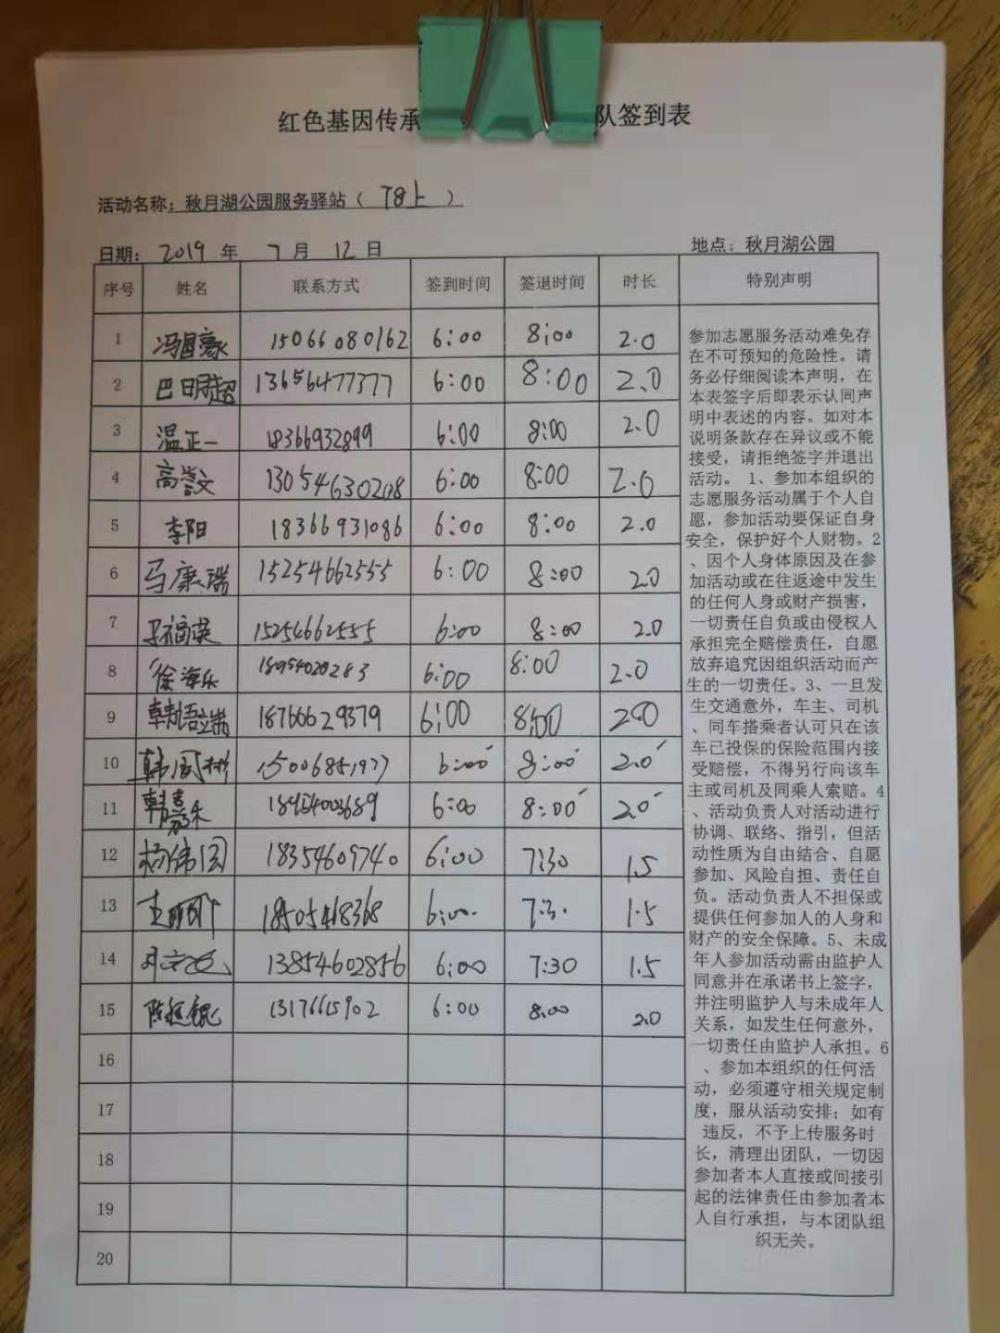 红色基因传承 队签到表
活动名称：秋月湖公园服务驿站（ 上 ）
日期： 2019 年 7 月 12 日 地点：秋月湖公园
序号 姓名 联系方式 签到时间 签退时间 时长 特别声明
1 15066080162 6:00 8:00 2.0
2 13656477377 6:00 8:00 2.0
3 温正一 18366932899 6:00 8:00 2.0
4 高誉文 13054630208 6:00 8:00 2.0
5 李阳 18366931086 6:00 8:00 2.0
6 马康瑞 15254662555 6:00 8:00 2.0
7 15254662555 6:00 8:00 2.0
8 徐海乐 18954020283 6:00 8:00 2.0
9 韩语瑞 18766629379 6:00 8:00 2.0
10 15006851977 6:00 8:00 2.0
11 6:00 8:00 2.0
12 杨伟国 18354609740 6:00 7:30 1.5
13 18505468368 6:00 7:30 1.5
14 13854602856 6:00 7:30 1.5
15 1317665902 6:00 8:00 2.0
16
17
18
19
20
参加志愿服务活动难免存
在不可预知的危险性。请
务必仔细阅读本声明，在
本表签字后即表示认同声
明中表述的内容。如对本
说明条款存在异议或不能
接受，请拒绝签字并退出
活动。 1、参加本组织的
志愿服务活动属于个人自
愿，参加活动要保证自身
安全，保护好个人财物。2
、因个人身体原因及在参
加活动或在往返途中发生
的任何人身或财产损害，
一切责任自负或由侵权人
承担完全赔偿责任，自愿
放弃追究因组织活动而产
生的一切责任。3、一旦发
生交通意外，车主、司机
、同车搭乘者认可只在该
车已投保的保险范围内接
受赔偿，不得另行向该车
主或司机及同乘人索赔。4
、活动负责人对活动进行
协调、联络、指引，但活
动性质为自由结合、自愿
参加、风险自担、责任自
负。活动负责人不担保或
提供任何参加人的人身和
财产的安全保障。5、未成
年人参加活动需由监护人
同意并在承诺书上签字，
并注明监护人与未成年人
关系，如发生任何意外，
一切责任由监护人承担。6
、参加本组织的任何活
动，必须遵守相关规定制
度，服从活动安排；如有
违反，不予上传服务时
长，清理出团队，一切因
参加者本人直接或间接引
起的法律责任由参加者本
人自行承担，与本团队组
织无关。